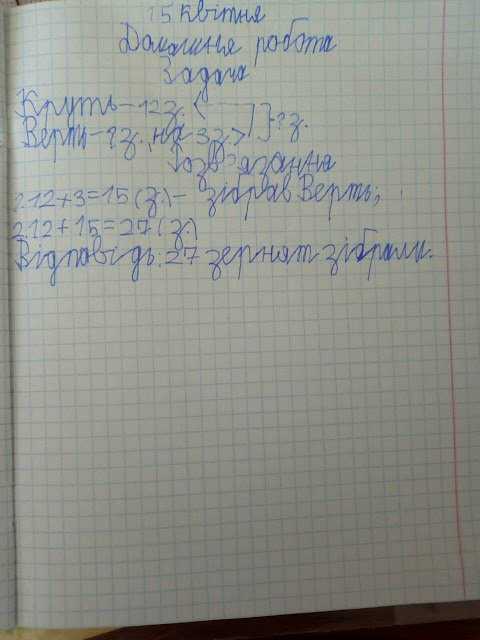 15 квітня
Домашня робота
Задача
Круть – 12 з.
Верть – ? з., на 3 з > } ? з.
Розв'язання
1. 12 + 3 = 15 (з.) – зібрав Верть;
2. 12 + 15 = 27 (з.)
Відповідь: 27 зернят зібрали.